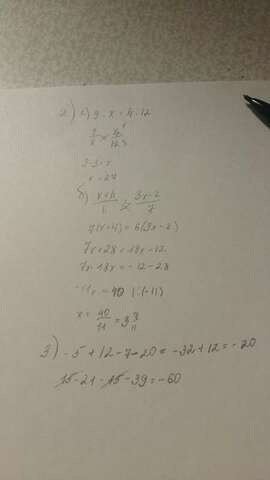 2) а) 9 : x = 4 : 12
9/x = 4/12
3 · 9 = x
x = 27
б) (x+4)/6 = (3x-2)/7
7(x+4) = 6(3x-2)
7x+28 = 18x-12
7x-18x = -12-28
-11x = -40 |:(-11)
x = 40/11 = 3 7/11
3) -5+12-7-20 = -32+12 = -20
15-21-15-39 = -60